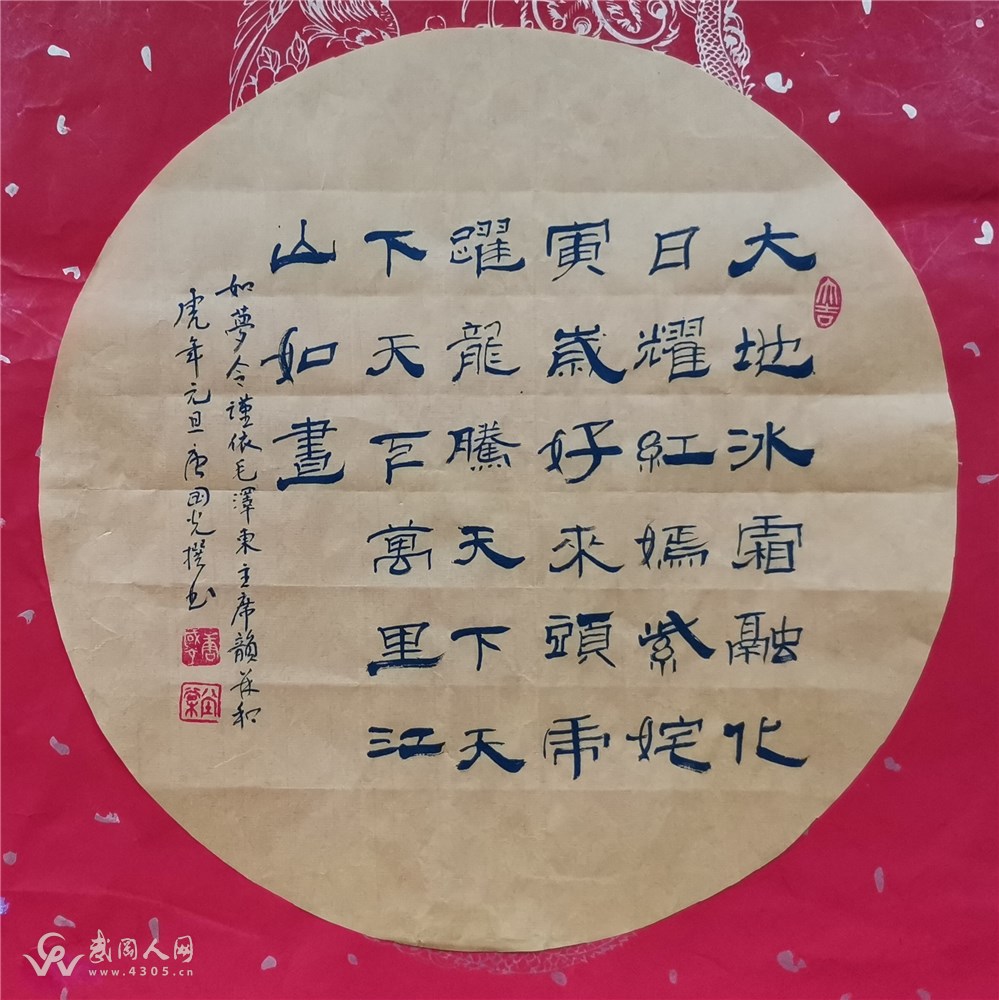 大吉
大地冰霜融化
日耀紅嫣紫姹
寅歲好來頭虎
躍龍騰天下天
下天下萬里江
山如畫
如夢令謹依毛澤東主席韻并和
虎年元旦唐国光撰书
武冈人网
www.4305.cn